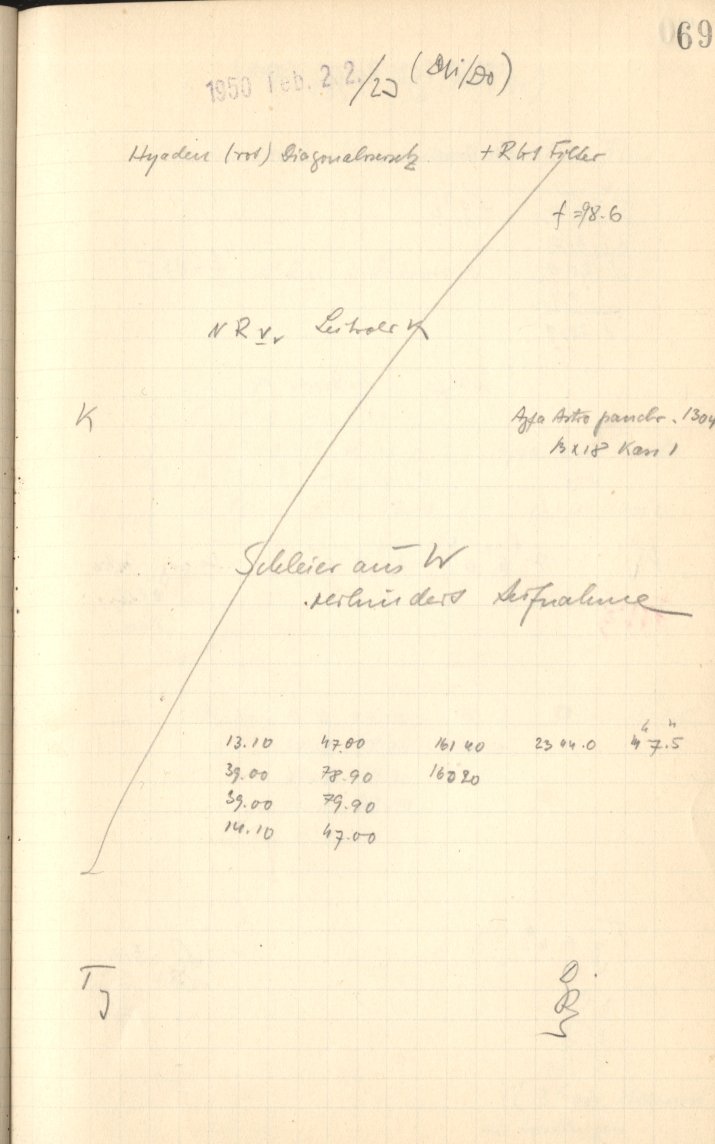 69
1950 Feb. 22. /23 (Mi/Do)
Hyaden (rot) + RG1 Filter
f = 98.6
N R
K
Agfa Astro panchr. 1304
13x18 Kass 1
Schleier aus W
verhindert Aufnahme
13.10 47.00 161 40 23 44.0 4 7.5
39.00 78.90 160 20
39.00 79.90
14.10 47.00
T J